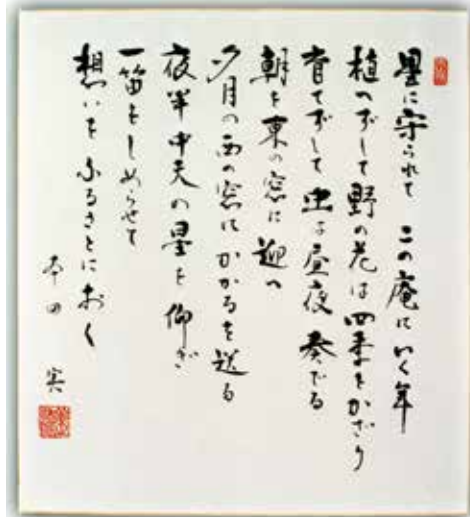 星に守られて この庵にいく年
植へずして野の花は四季をかざり
育てずして虫は昼夜奏でる
朝を東の窓に迎へ
夕月の西の窓にかかるを送る
夜半中天の星を仰ぎ
一笛をしめらせて
想いをふるさとにおく
本田 実